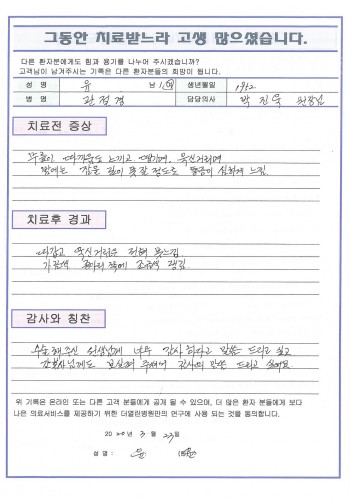 그동안 치료받느라 고생 많으셨습니다.
다른 환자분에게도 힘과 용기를 나누어 주시겠습니까?
고객님이 남겨주시는 기록은 다른 환자분들의 희망이 됩니다.
성 명 윤 남 / 여 생년월일 1952.
병 명 관절경 담당의사 박진욱 원장님
치료전 증상
무릎이 따가움도 느끼고 욱신거리며
밤에는 잠을 깊이 못잘 정도로 통증이 심하게 느낌
치료후 경과
따갑고 욱신거리움 전혀 못느낌
가끔씩 종아리 쪽에 조금씩 땡김
감사와 칭찬
수술해주신 선생님께 너무 감사하다고 말씀 드리고 싶고
간호사님께도 보살펴 주셔서 감사의 말씀 드리고 싶어요
위 기록은 온라인 또는 다른 고객 분들에게 공개 될 수 있으며, 더 많은 환자 분들에게 보다
나은 의료서비스를 제공하기 위한 더열린병원만의 연구에 사용 되는 것을 동의합니다.
2020년 3월 23일
성 명 : 윤